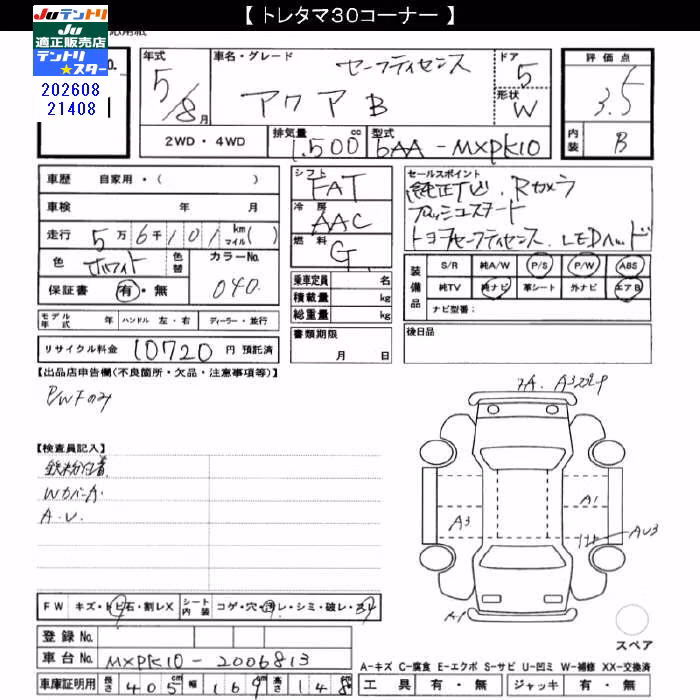 【 トレタマ30コーナー 】
Juテントリ
Ju
適正販売店
テントリ
★スター
No.
202608
21408
年式
5/8月
車名・グレード
セーフティセンス
アクア B
ドア
5
形状
W
評価点
3.5
内装
B
2WD・4WD
排気量
1,500 cc
型式
6AA-MXPK10
車歴 自家用・( )
車検 年 月
走行 5万6千101 km マイル( )
色 ホワイト 色替
カラーNo.
040
保証書 有・無
モデル年式 年 ハンドル 左・右 ディーラー・並行
リサイクル料金 10720 円 預託済
シフト
FAT
冷房
AAC
燃料
G
乗車定員 名
積載量 kg
総重量 kg
書類期限
月 日
セールスポイント
純正ナビ. Rカメラ
プッシュスタート
トヨタセーフティセンス. LEDヘッド
装備品
S/R 純A/W P/S P/W ABS
純TV 純ナビ 革シート 外ナビ エアB
ナビ型番:
後日品
【出品店申告欄(不良箇所・欠品・注意事項等)】
P/WFのみ
【検査員記入】
鉄粉付着
Wカバーキズ
A.U.
7A. A3
A3
A1
AU3
A1
スペア
FW キズ・トビ石・割レX
シート内装 コゲ・穴・汚レ・シミ・破レ・スレ
登録No.
車台No. MXPK10-2006813
車庫証明用 長さ 405cm 幅 169cm 高さ 148cm
A-キズ C-腐食 E-エクボ S-サビ U-凹ミ W-補修 XX-交換済
工具 有・無 ジャッキ 有・無